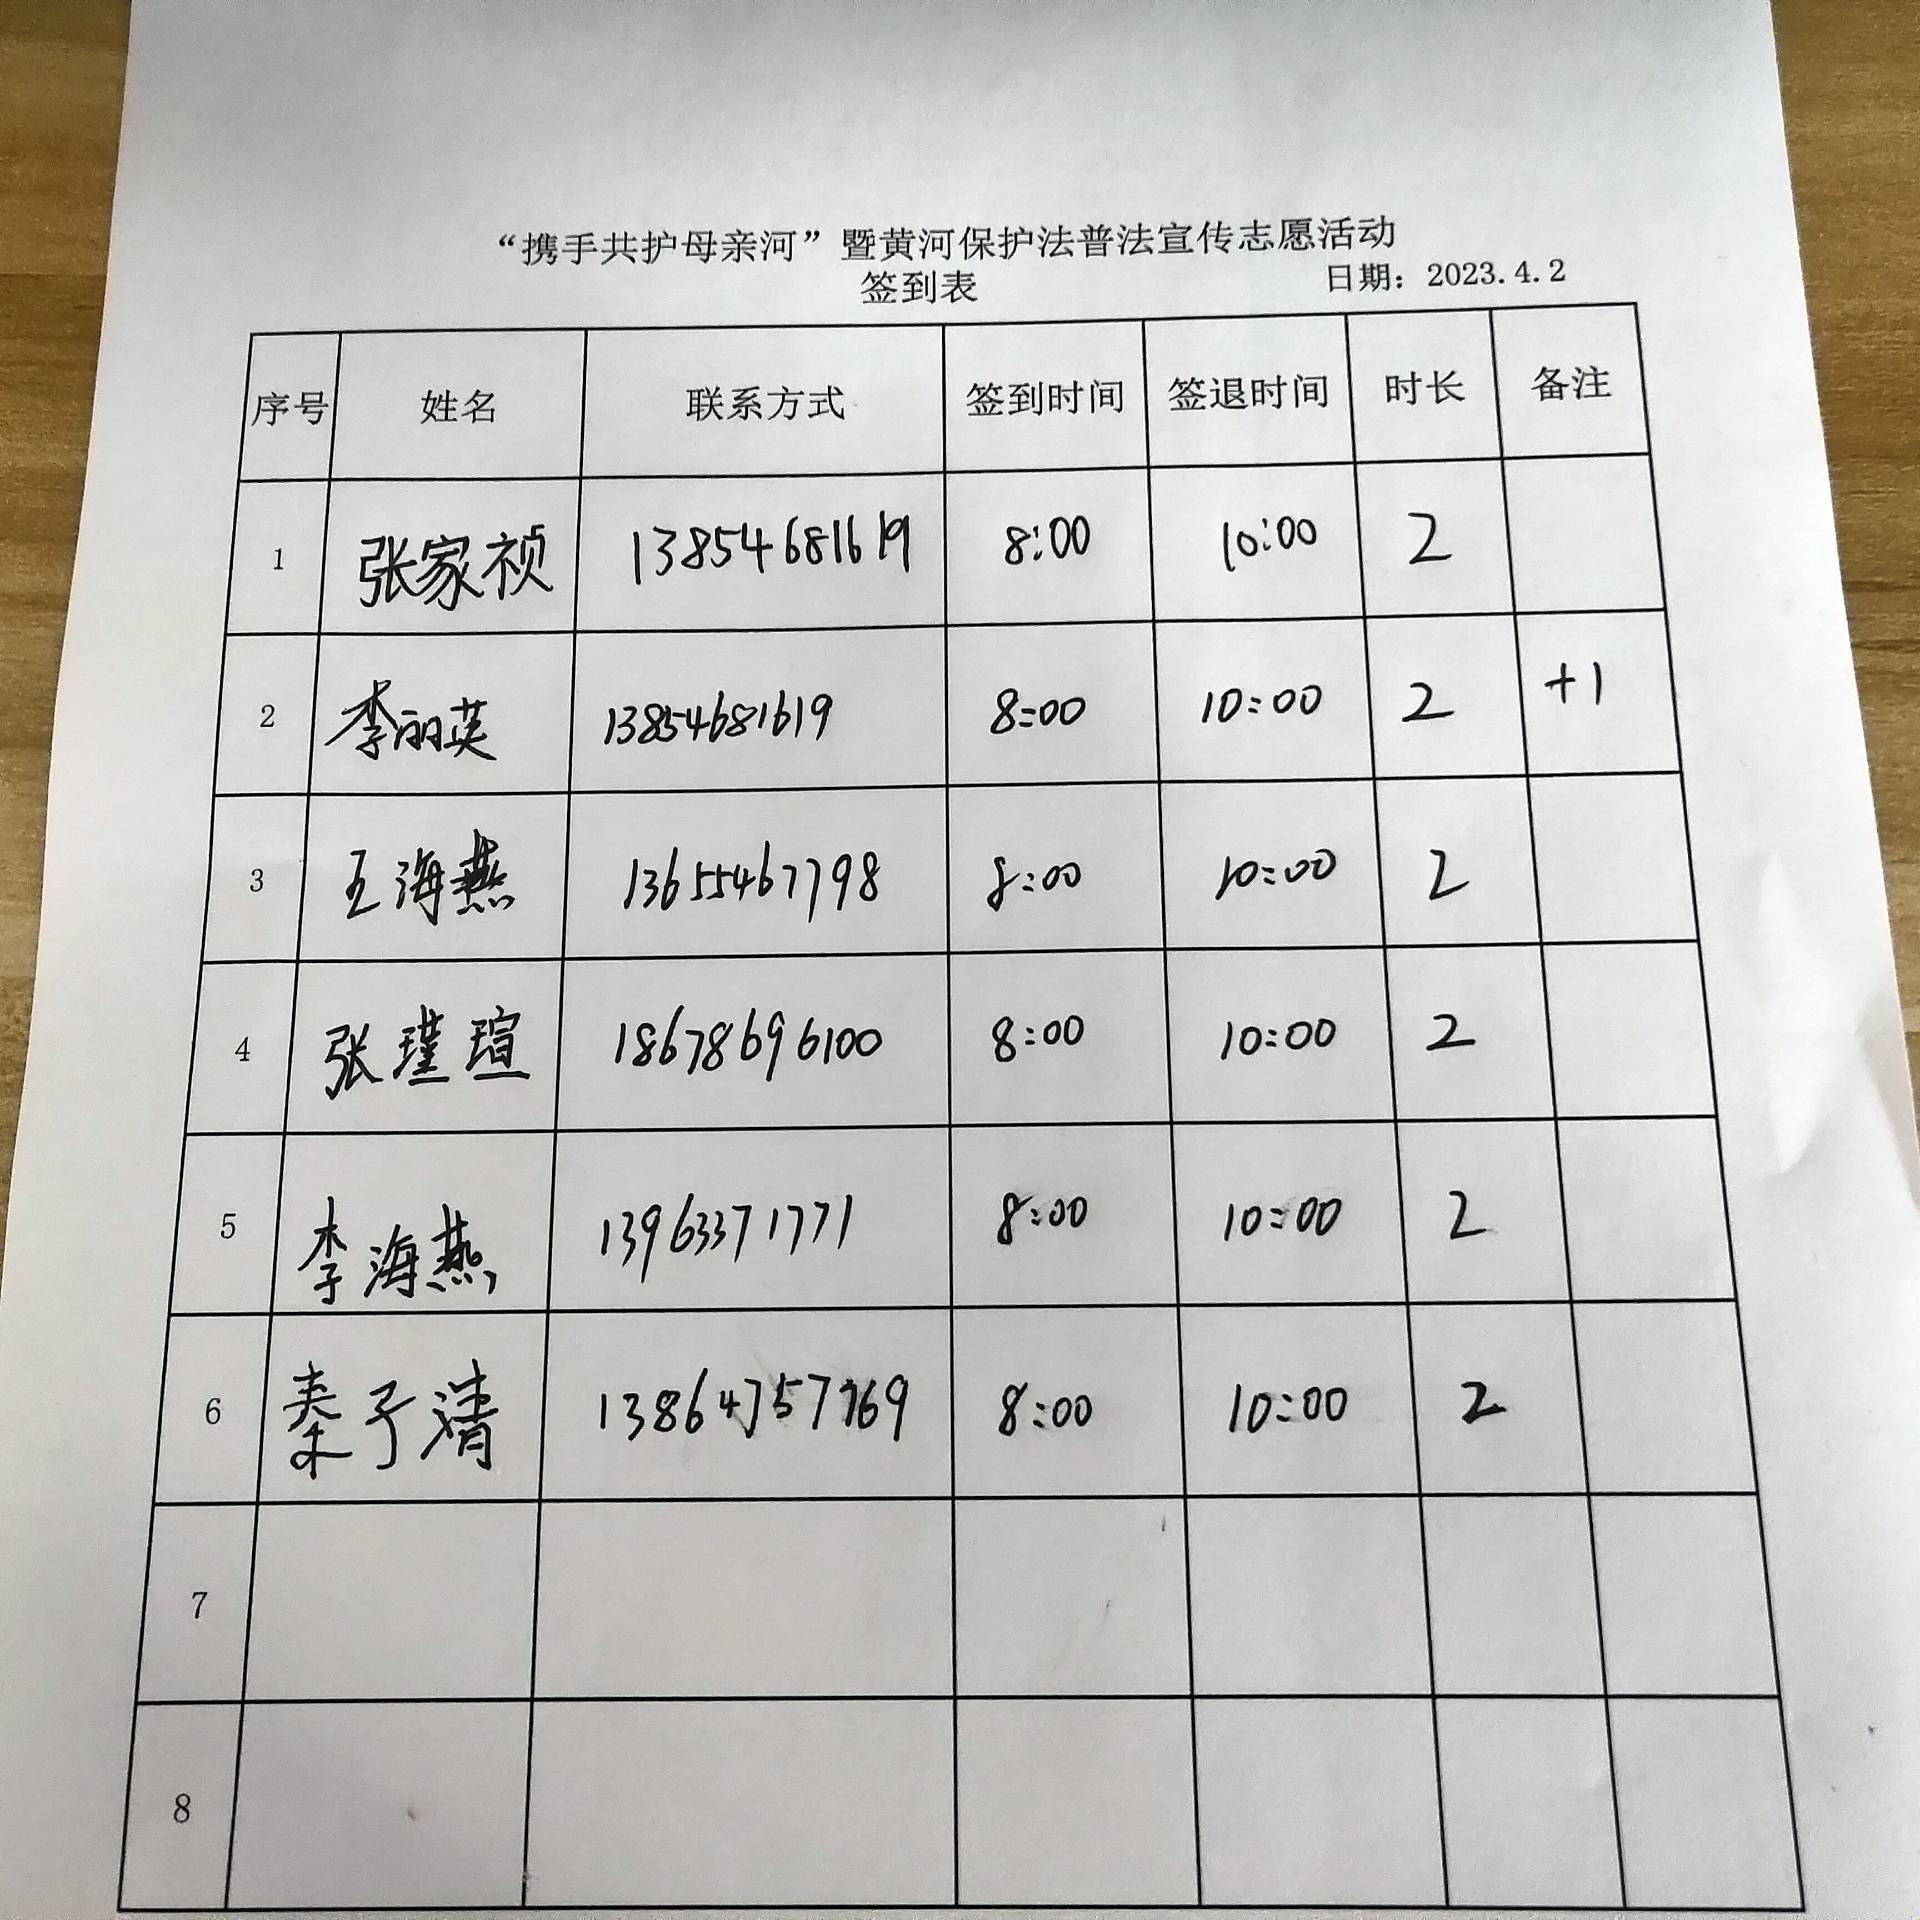 “携手共护母亲河”暨黄河保护法普法宣传志愿活动
签到表 日期：2023.4.2
序号 姓名 联系方式 签到时间 签退时间 时长 备注
1 张家祯 13854681619 8:00 10:00 2
2 李丽英 13854681619 8:00 10:00 2 +1
3 王海燕 13655467798 8:00 10:00 2
4 张瑾瑄 18678696100 8:00 10:00 2
5 李海燕 13963371771 8:00 10:00 2
6 秦子清 13864757769 8:00 10:00 2
7
8